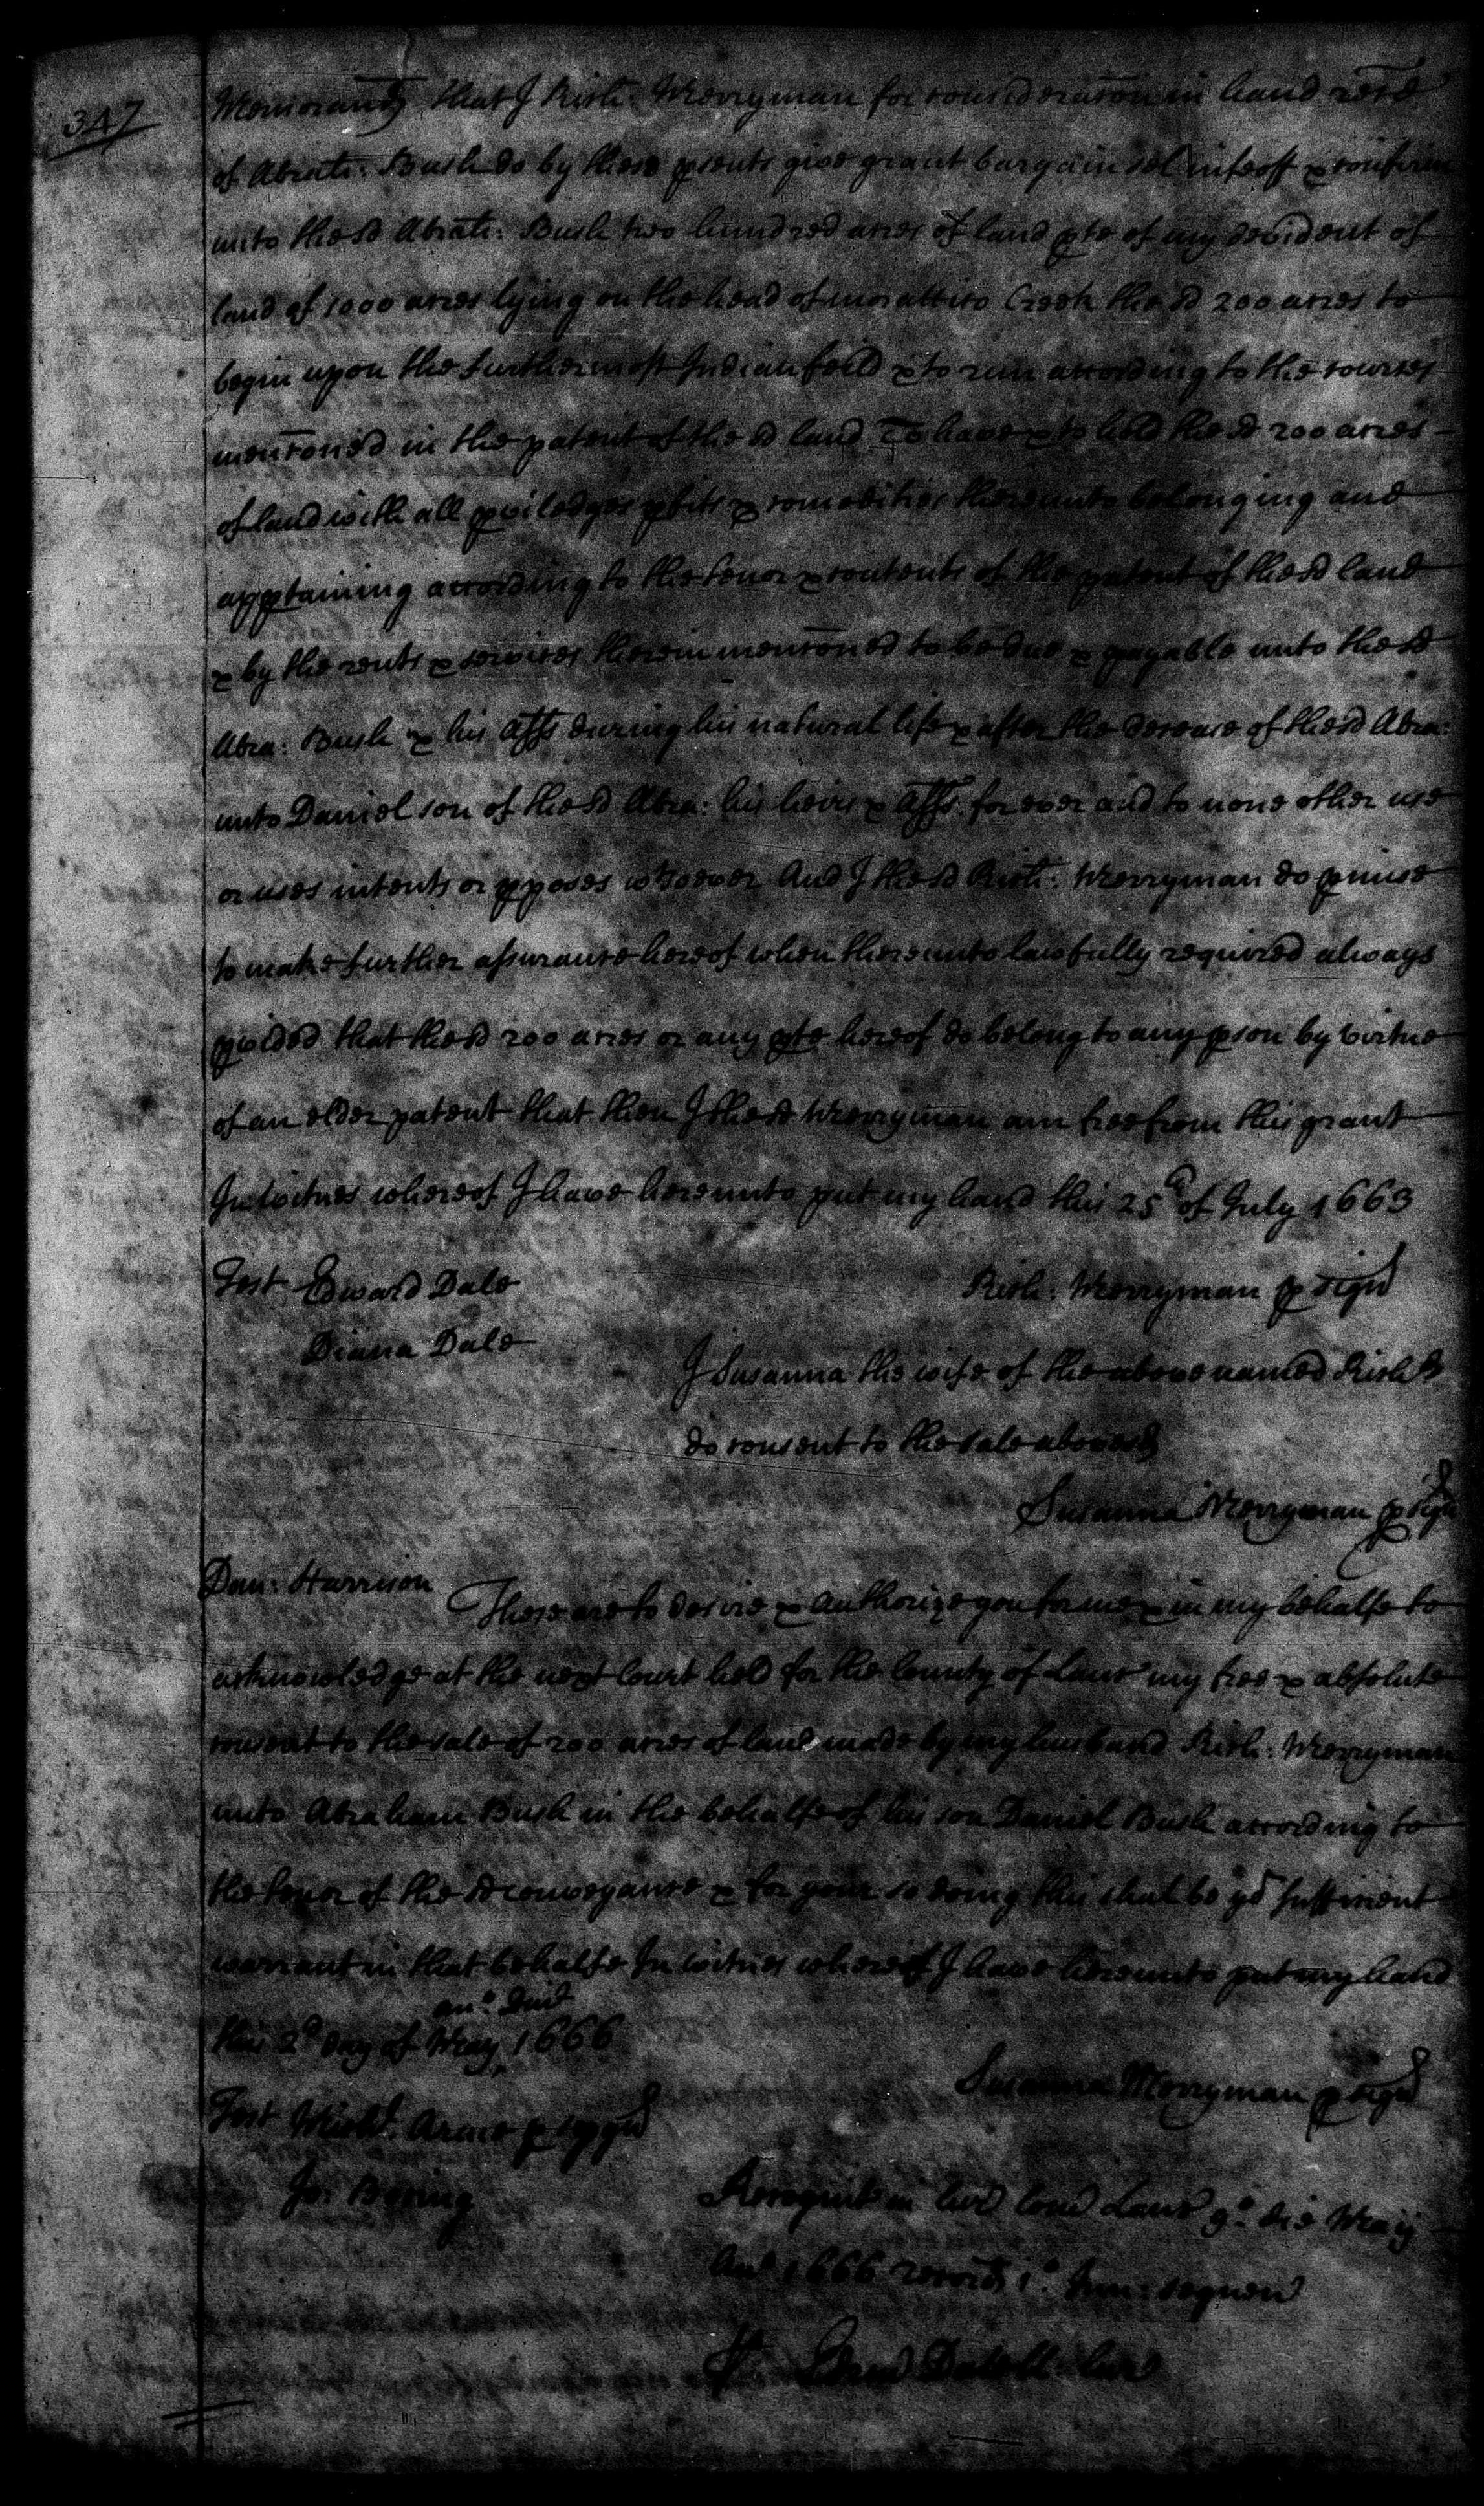 347
Memorand that I Rich: Merryman for consideracon in hand recd
of Abrah: Bush do by these psents give grant bargain sel infeoff & confirm
unto the sd Abrah: Bush two hundred acres of land pte of my devident of
land of 1000 acres lying on the head of morattico Creek the sd 200 acres to
begin upon the furthermost Indian feild & to run according to the courses
mencioned in the patent of the sd land To have & to hold the sd 200 acres
of land with all priviledges pfits & comodities thereunto belonging and
appptaining according to the tenor & contents of the patent of the sd land
& by the rents & services therein mencioned to be due & payable unto the sd
Abra: Bush & his Asss during his natural life & after the decease of the sd Abra:
unto Daniel son of the sd Abra: his heirs & Asss. for ever and to none other use
or uses intents or pposes wtsoever And I the sd Rich: Merryman do pmise
to make further assurance hereof when thereunto lawfully required always
pvided that the sd 200 acres or any pte hereof do belong to any pson by virtue
of an elder patent that then I the sd Merryman am free from this grant
In witnes whereof I have hereunto put my hand this 25th of July 1663
Test Edward Dale Rich: Merryman p sign
Diana Dale
I Susanna the wife of the above named Rich d
do consent to the sale abovesd
Susanna Merryman p sign
Dan: Harrison
These are to desire & authorize you for me & in my behalfe to
acknowledge at the next Court held for the County of Lanc my free & absolute
consent to the sale of 200 acres of land made by my husband Rich: Merryman
unto Abraham Bush in the behalfe of his son Daniel Bush according to
the tenor of the sd conveyance & for your so doing this shal be yor sufficient
warrant in that behalfe In witnes whereof I have hereunto put my hand
ano Dni
this 2d day of May, 1666
Susanna Merryman p sign
Test Michl Arme p sign
Jo: Boring
Recognit in Cur Com Lanc 9o die Maij
Ano 1666 record 1o Jun: sequen
p Edrd Dale Cl Cur